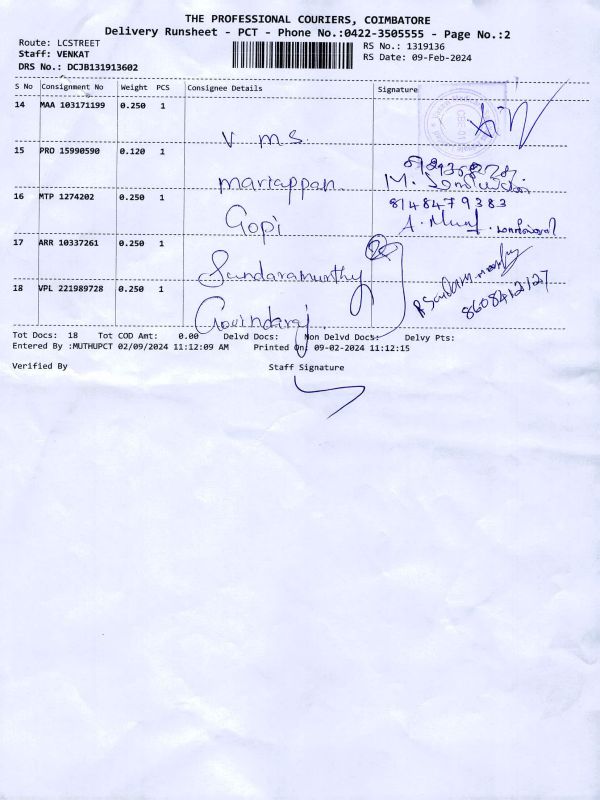 THE PROFESSIONAL COURIERS, COIMBATORE
Delivery Runsheet - PCT - Phone No.:0422-3505555 - Page No.:2
Route: LCSTREET
RS No.: 1319136
Staff: VENKAT
RS Date: 09-Feb-2024
DRS No.: DCJB131913602
S No Consignment No Weight PCS Consignee Details Signature
14 MAA 103171199 0.250 1
V m s.
15 PRO 15990590 0.120 1
mariappan
16 MTP 1274202 0.250 1
8148479383
Gopi
17 ARR 10337261 0.250 1
Sundaramurthy
18 VPL 221989728 0.250 1
8608412127
Govindaraj.
Tot Docs: 18 Tot COD Amt: 0.00 Delvd Docs: Non Delvd Docs: Delvy Pts:
Entered By :MUTHUPCT 02/09/2024 11:12:09 AM Printed On: 09-02-2024 11:12:15
Verified By Staff Signature